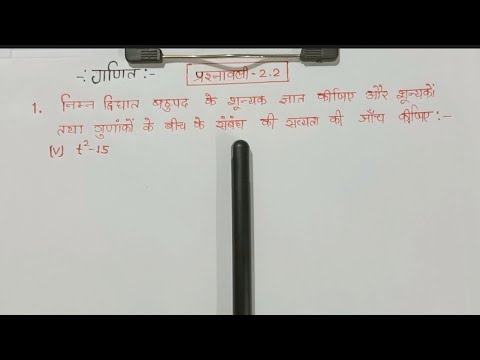 -: गणित :-
प्रश्नावली - 2.2
1. निम्न द्विघात बहुपद के शून्यक ज्ञात कीजिए और शून्यकों
तथा गुणांकों के बीच के संबंध की सत्यता की जाँच कीजिए :-
(v) t²-15